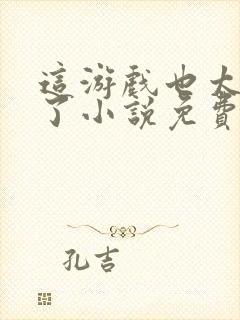 這游戲也太
了小說免費
孔吉